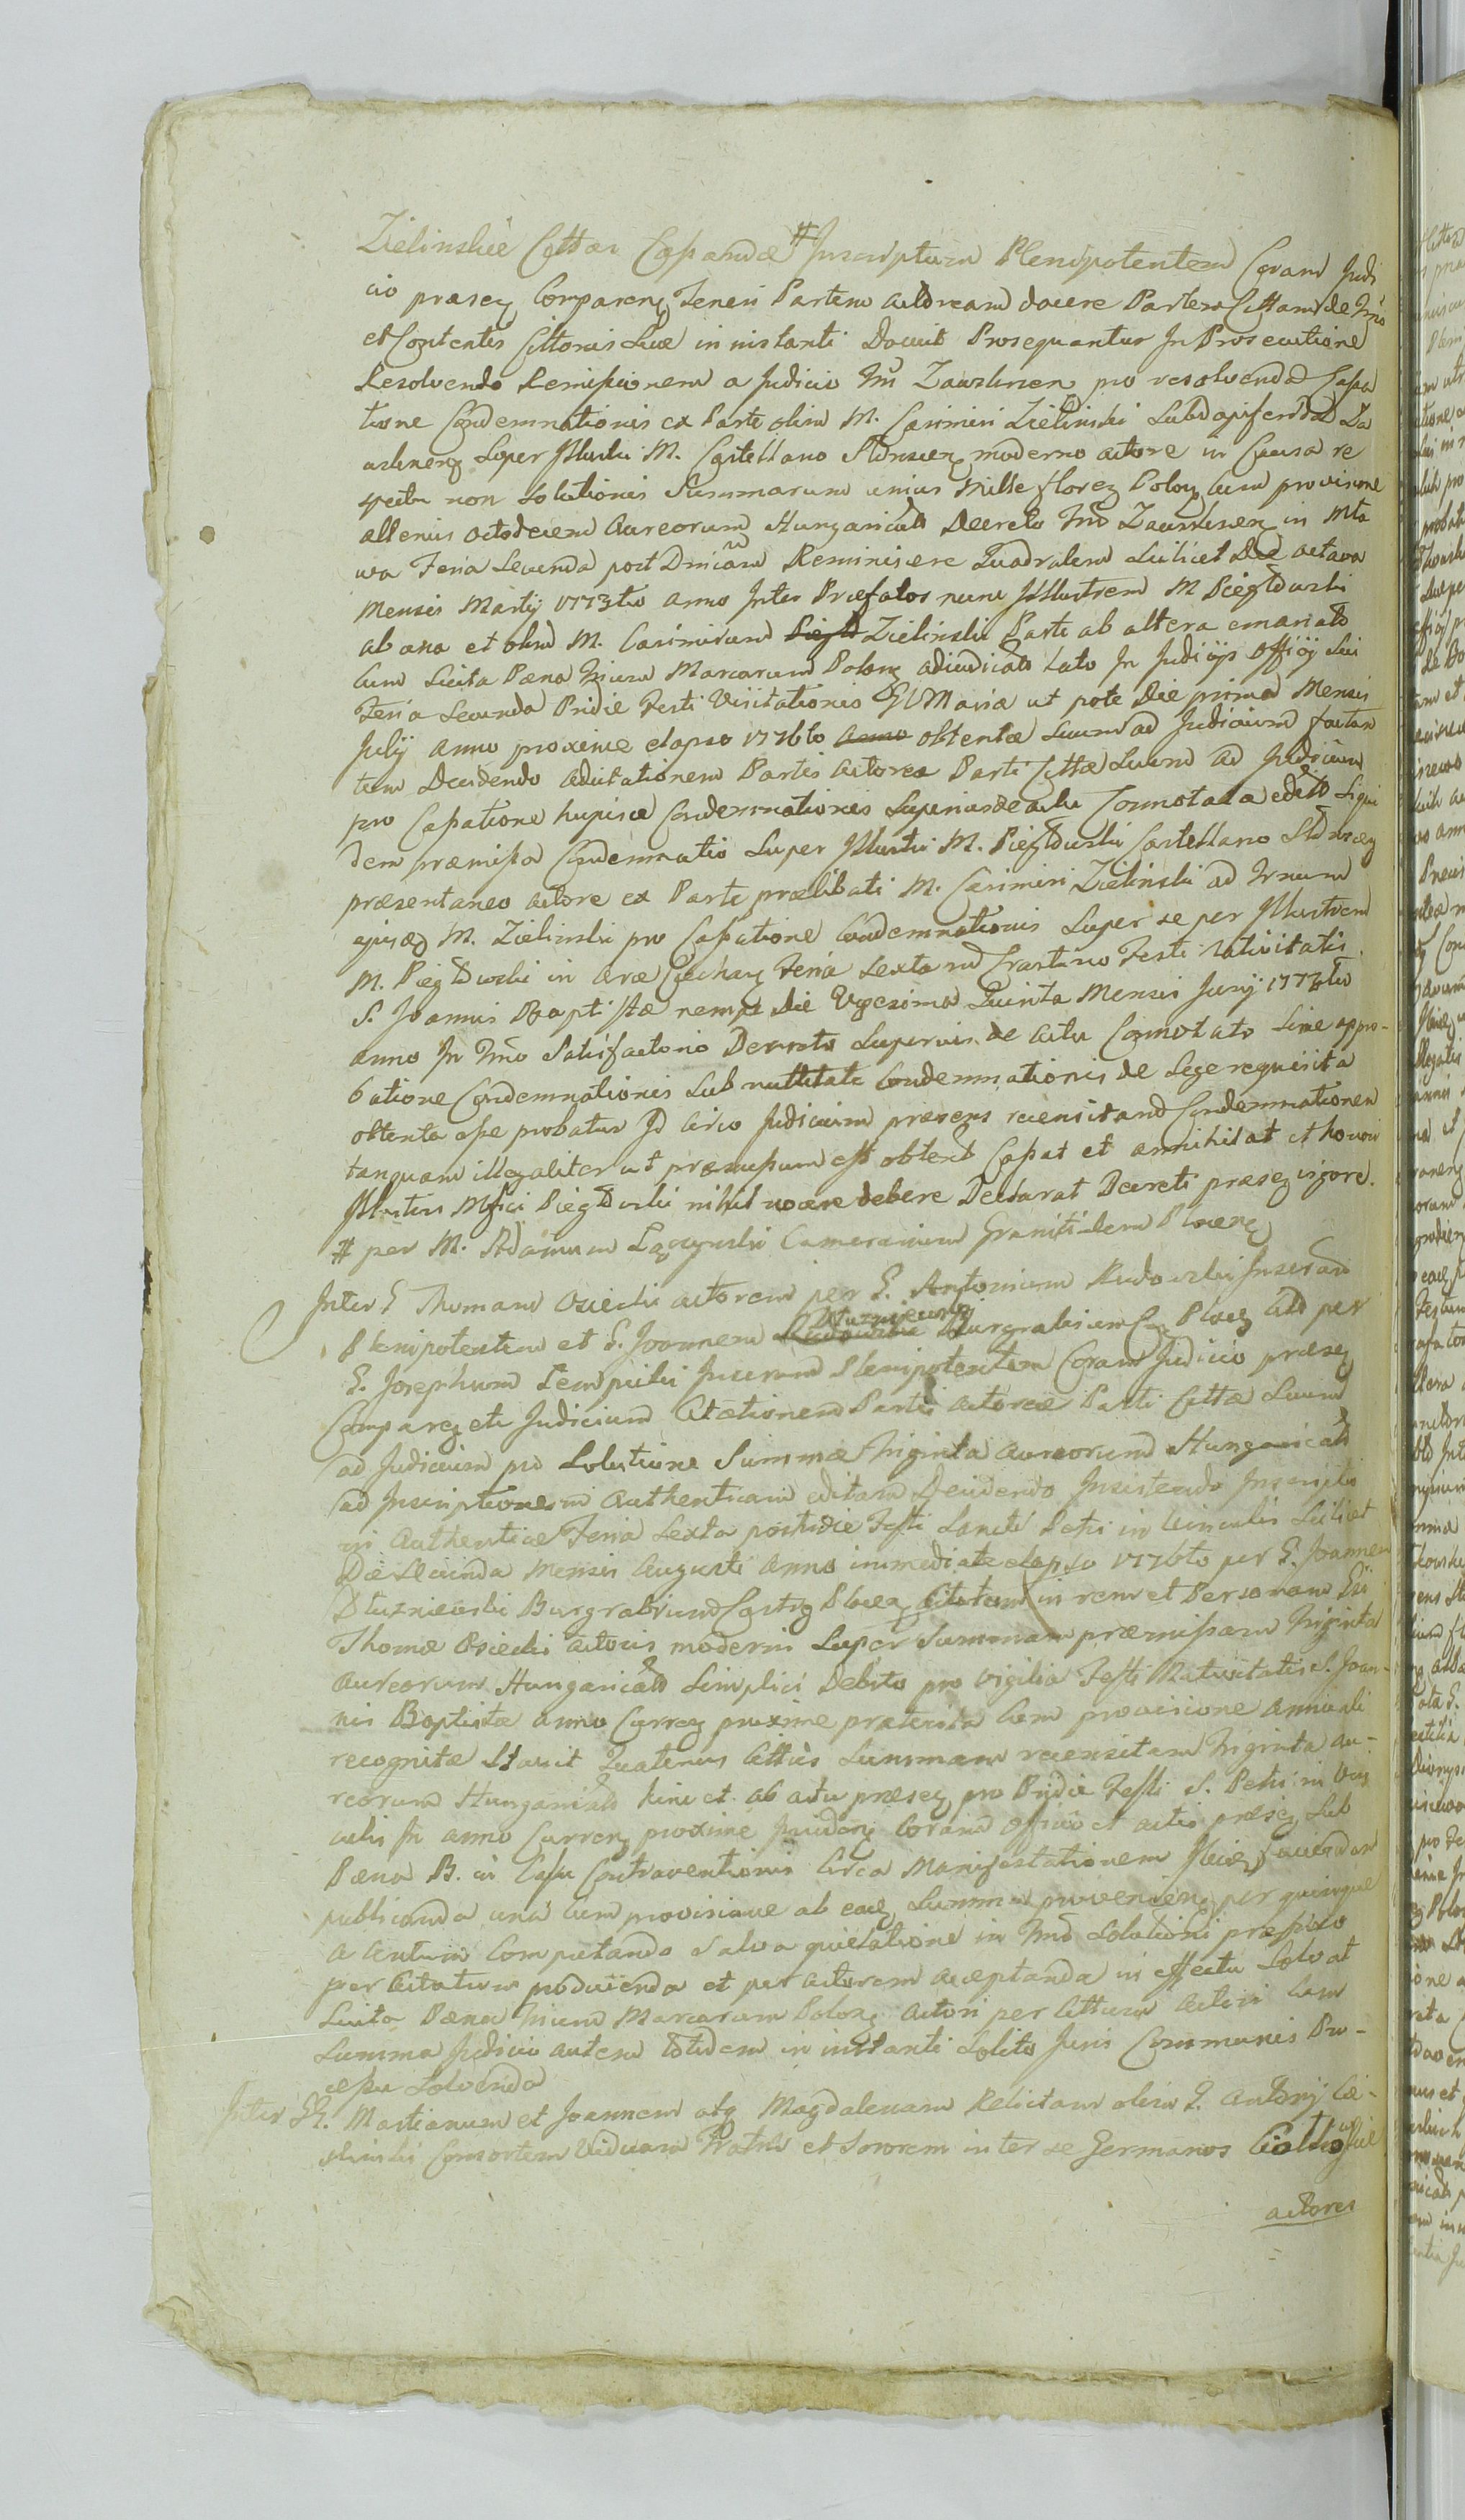 Zielinskie Cittae Capandae # Inscriptum Plenipotentem Coram Judi
cio praeseᶇ Compareᶇ Teneri Partem actoream docere Partem Cittam de Tmo
et Contentis Cittonis Suae in instanti Docuit Prosequantur In Prosecutione
Resolvendo Remissionem a Judicio Tri Zawskrzeᶇ pro resolvenda Cassa
tione Condemnationis ex Parte olim M. Casimiri Zielinski Subdapiferida Za
wkrzeᶇ Super Illustri M. Castellano moderno actore in Causa re
spectu non Solutionis Summarum unius Mille floreᶇ Poloᶇ cum provisione
alterius octodecem Aureorum Hungaricald Decreto Tri Zawskrzeᶇ in Mła
wa Feria Secunda post Dnicam Reminiscere Quadralem Scilicet Die octava
Mensis Martij 1773tio Anno Inter Praefatos nunc Illustrem M Piegłowski
ab una et olim M. Casimirum Piegło Zielinski Parte ab altera emanato
cum Lucita Paena Trium Marcarum Polon adiudicato Lato In Judicijs Officij Sui
Feria Secunda Pridie Festi Visitationis BVMariae ut pote Die prima Mensis
Julij anno proxime elapso 1776to Anno obtentae Suum ad Judicium factam
tum Decidendo Adcitationem Partis Actoreae Parti Cittae Suum ad Judicium
pro Cassatione hujusce Condemnationis Superius de actu Connotata edito Siqui
dem praemissa Condemnatio Super Illustri M. Piegłowski Castellano
praesentaneo actore ex Parte praelibati M. Casimiri Zielinski ad Trnum
ejusd M. Zielinski pro Cassatione Condemnationis Super se per Illustrem
M. Piegłowski in Arce Ciechaᶇ Feria Sexta in Crastino Festi Nativitatis
S. Joannis Baptistae nempe Die Vigesima Quinta Mensis Junij 1773tio
anno In Tmo Satisfactorio Decreto Superius de actu Connotato Sine appro-
batione Condemnationis Sub nullitate Condemnationis de Lege requisita
obtenta esse probatur Id circo Judicium praesens recensitam Condemnationem
tanquam illegaliter ut praemissum est obtent Cassat et annihilat et honori
Illustris Mfici Piegłowski nihil nocere debere Declarat Decreti praeseᶇ vigore.
# per M. Adamum Łączynski Camerarium Granitialem Ploceᶇ
Inter G Thomam Osiecki actorem per G. Antonium Rudowski Inscrum
Plenipotentem et G. Joannem Rudowski Dłuzniewski Burgrabium Ploceᶇ Cittum per
G. Josephum Sempicki Inscrum Plenipotentem Coram Judicio praeseᶇ
Compareᶇ etc Judicium Citationem Partis Actoreae Parti Cittae Suum
ad Judicium pro Solutione Summae Triginta Aureorum Hungaricald
ad Inscriptionem Authenticam editam Decidendo Insistendo Inscriptio
ni Authenticae Feria Sexta postridie Festi Sancti Petri in Vinculis Scilicet
Die Secunda Mensis Augusti Anno immediate elapso 1776to per G. Joannem
Dłuzniewski Burgrabium Castreᶇ Ploceᶇ Citatum in rem et Personam Gsi
Thomae Osiecki actoris moderni Super Summam praemissam Triginta
Aureorum Hungaricald Simplici Debito pro Vigilia Festi Nativitatis S. Joan-
nis Baptistae anno Curreᶇ proxime praeterita cum provisione Annuali
recognitae Statuit Quatenus Cittus Summam recensitam Triginta Au-
reorum Hungaricald hinc et ab actu praeseᶇ pro Pridie Festi S. Petri in Vin
culis In anno Curreᶇ proxime Incideᶇ Coram Officio et actis praeseᶇ Sub
Paena B. in Casu Contraventionis Circa Manifestationem
publicanda una cum provisione ab eaᶇ Summa provenieᶇ per quinque
a Centum Computando Salva quietatione in Tmo Solutioni praefixo
per Citatum producenda et per actorem acceptanda in effectu Solvat
Lucita Paena Trium Marcarum Poloᶇ Actori per Cittum actori cum
Summa Judicio autem totidem in instanti Solito Juris Communis Pro-
cessu Solvenda
Inter GG. Martianum et Joannem atq Magdalenam Relictam olim G. Antonij Cie-
slinski Consortem Viduam Fratres et Sororem inter se Germanos
actores